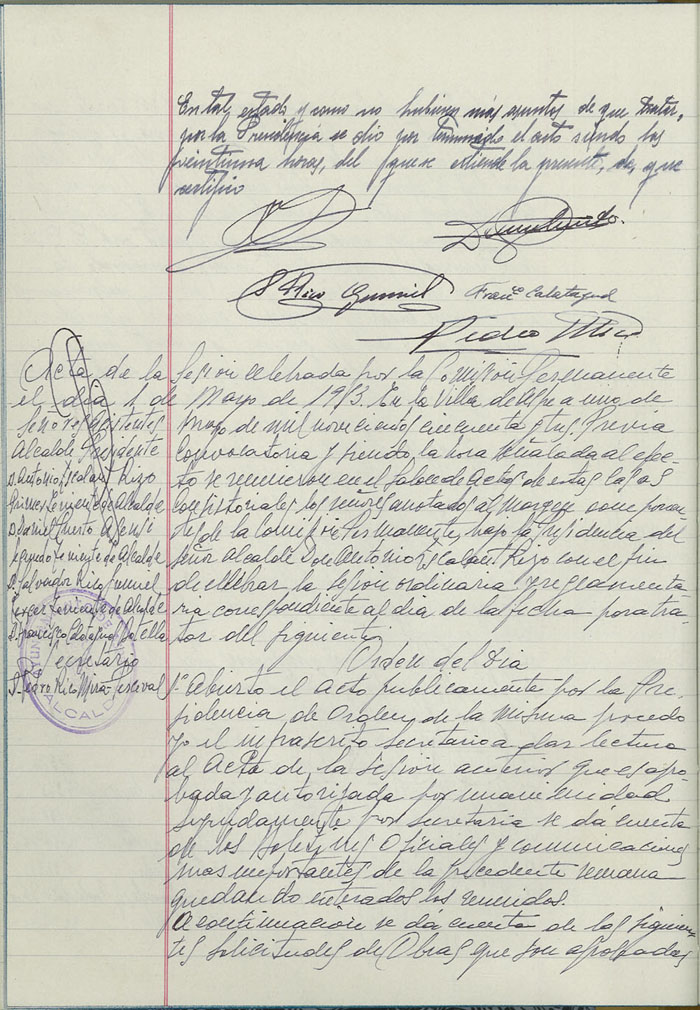 En tal estado y como no hubiera más asuntos de que tratar,
por la Presidencia se dio por terminado el acto siendo las
veintiuna horas, del que se extiende la presente, de que
certifico
S. Rico Gumiel
Franco Calatayud
Pedro Rico
Acta de la Sesion celebrada por la Comision Permanente
el dia 1 de Mayo de 1953. En la Villa de Aspe a uno de
Mayo de mil novecientos cincuenta y tres. Previa
Convocatoria y siendo la hora señalada al efec-
to se reunieron en el Salon de actos de estas Casas
Consistoriales los señores anotados al margen componen-
tes de la Comision Permanente, bajo la Presidencia del
señor Alcalde Don Antonio Escalant Rizo con el fin
de celebrar la sesion ordinaria y reglamenta-
ria correspondiente al dia de la fecha para tra-
tar del siguiente
Señores asistentes
Alcalde Presidente
D. Antonio Escalant Rizo
Primer Teniente de Alcalde
D. Daniel Puerto Asensi
Segundo Teniente de Alcalde
D. Salvador Rico Gumiel
Tercer Teniente de Alcalde
D. Francisco Calatayud Botella
Secretario
D. Pedro Rico
ALCALDIA
Orden del Dia
1º Abierto el acto publicamente por la Pre-
sidencia, de Orden de la misma procedo
yo el infrascrito Secretario a dar lectura
al Acta de la sesion anterior que es apro-
bada y autorizada por unanimidad
Seguidamente por Secretaria se dá cuenta
de los Boletines Oficiales y comunicaciones
mas importantes de la precedente semana
quedando enterados los reunidos.
A continuacion se dá cuenta de las siguien-
tes solicitudes de Obras que son aprobadas